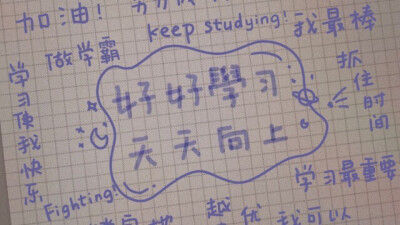 加油!
keep studying!
我最棒
做学霸
学习使我快乐
抓住时间
好好學习
天天向上
学习最重要
Fighting!
越
优
我可以